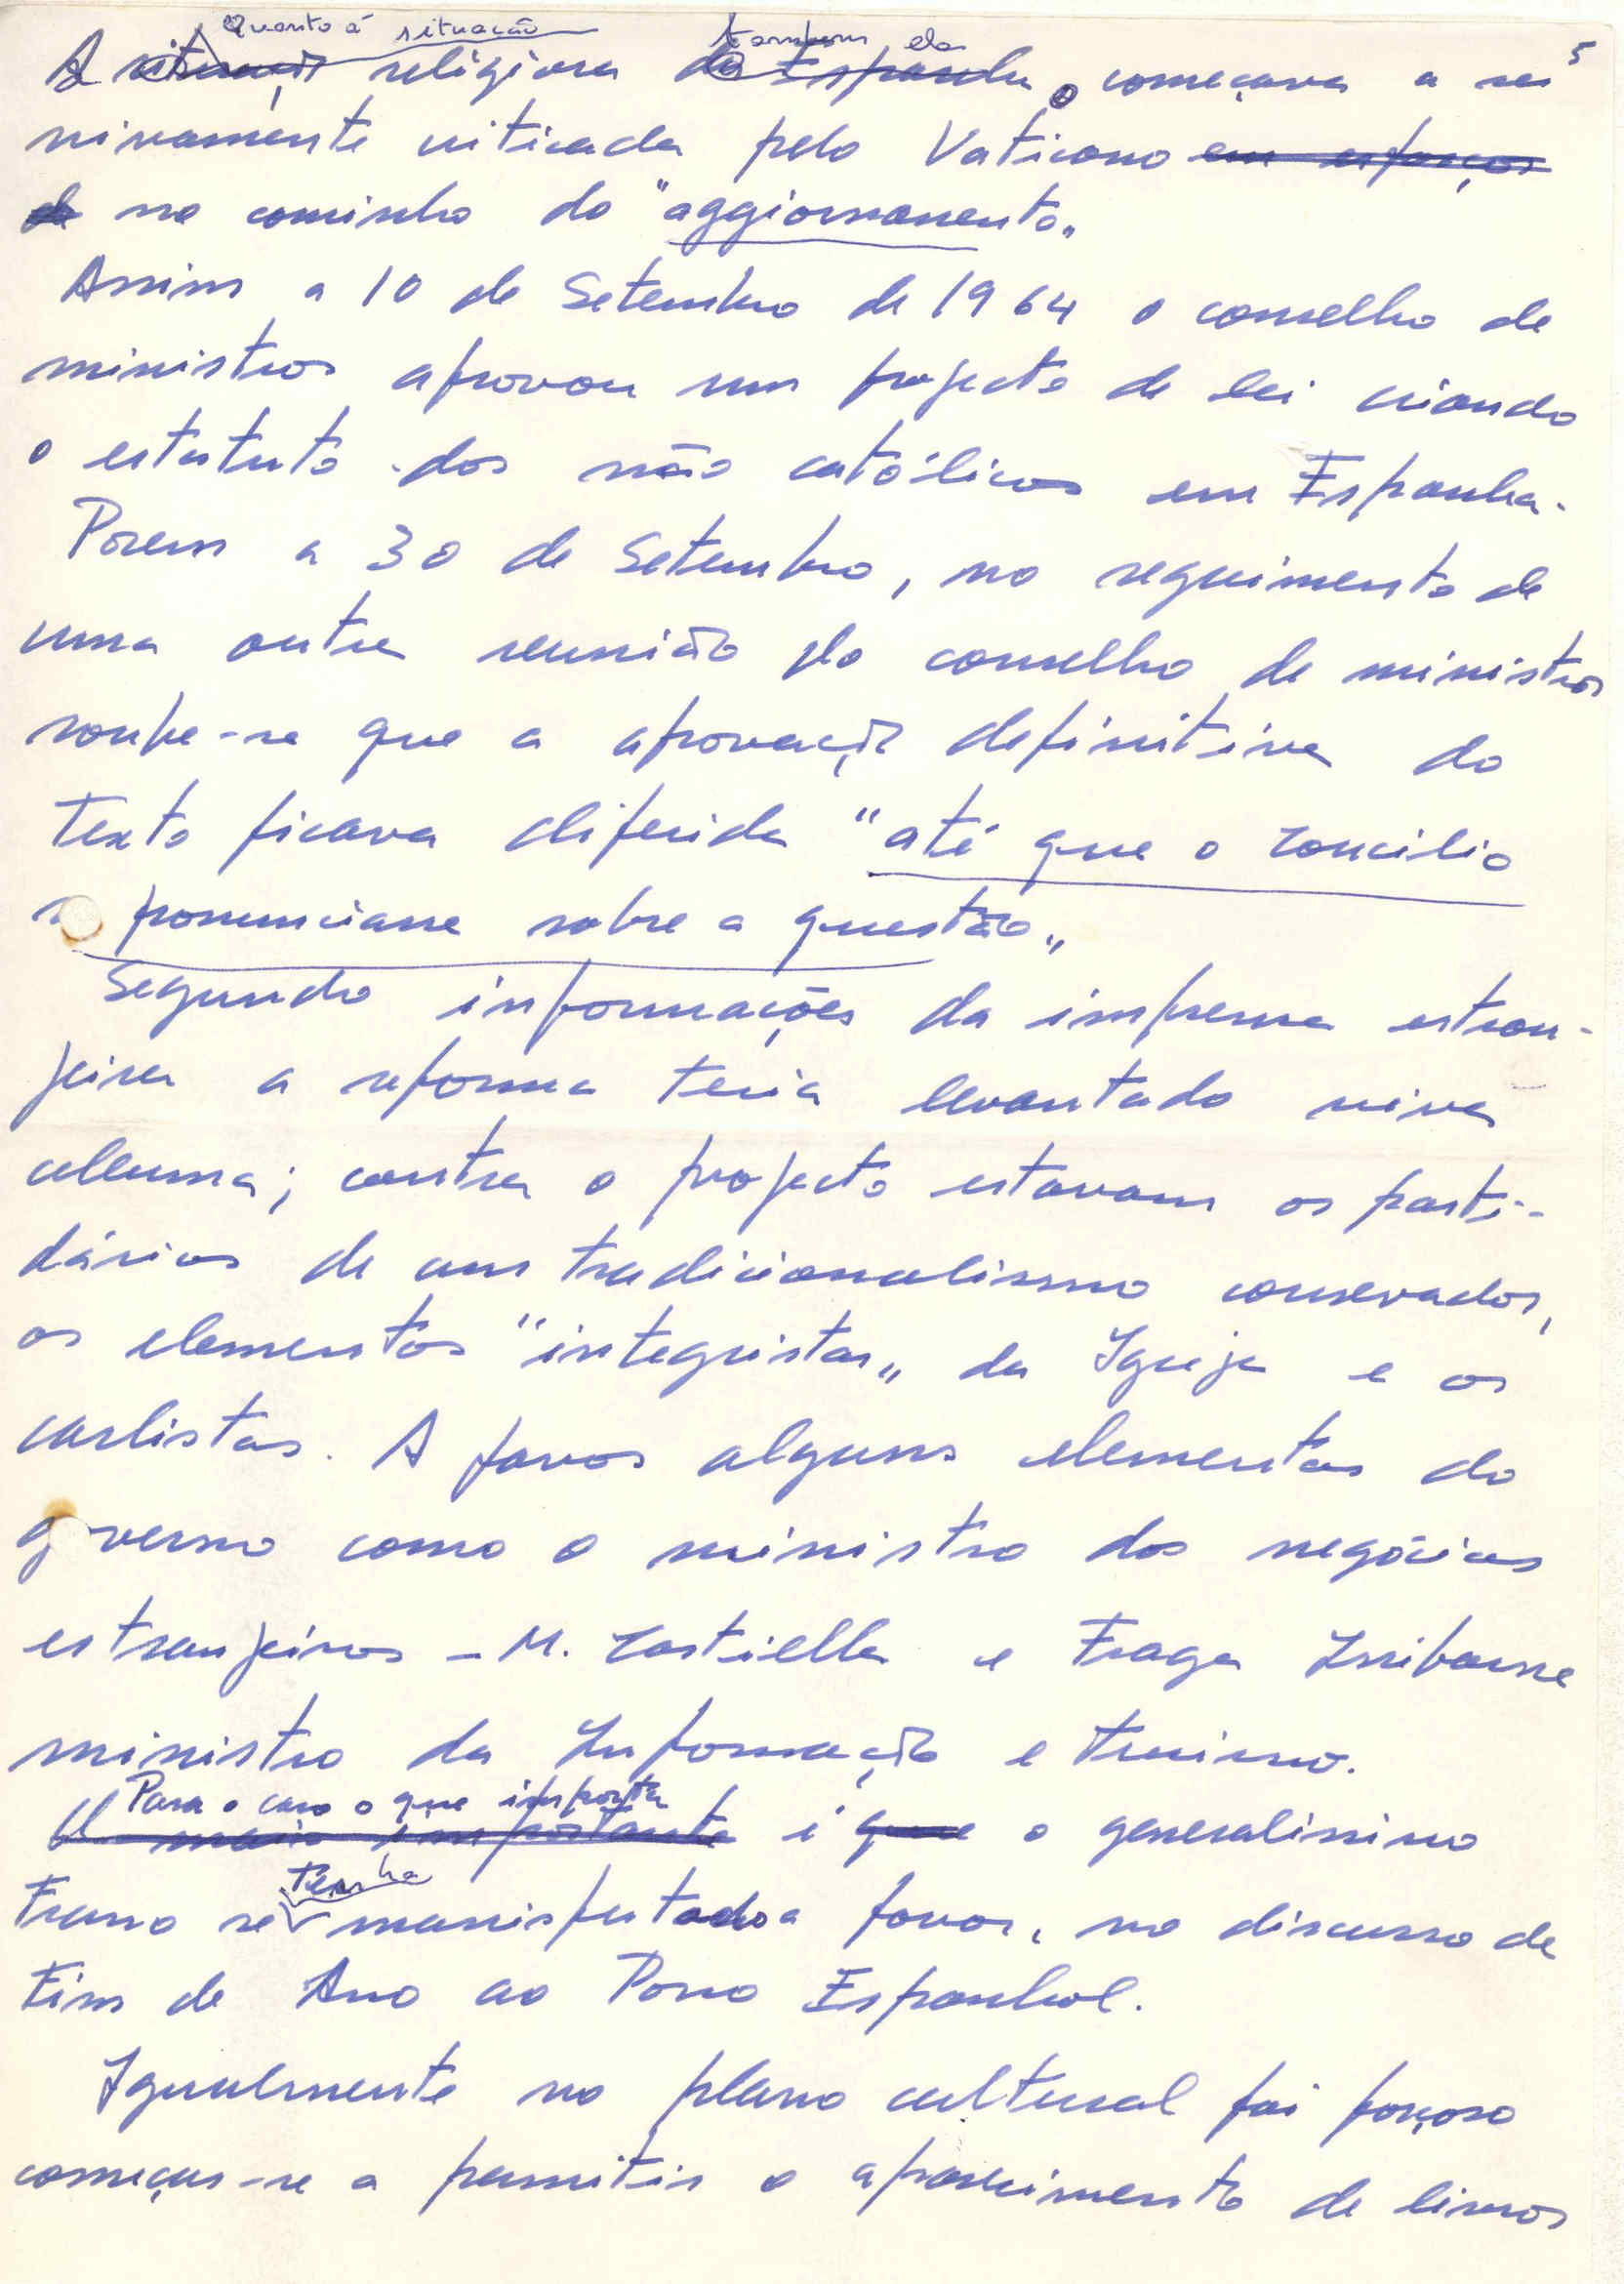 5
Quanto á situação também ela
A situação religiosa da Espanha, começava a ser
vivamente criticada pelo Vaticano em esforços
de no caminho do "aggiornamento„
Assim a 10 de Setembro de 1964 o conselho de
ministros aprovou um projecto de lei criando
o estatuto dos não católicos em Espanha.
Porem a 30 de Setembro, no seguimento de
uma outra reunião do conselho de ministros
soube-se que a aprovação definitiva do
texto ficava diferida "até que o concilio
se pronunciasse sobre a questão„
Segundo informações da imprensa estran-
jeira a reforma teria levantado viva
celeuma; contra o projecto estavam os parti-
dários de um tradicionalismo conservador,
os elementos "integristas„ da Igreja e os
carlistas. A favor alguns elementos do
governo como o ministro dos negócios
estranjeiros - M. Castiella e Fraga Iribarne
ministro da Informação e turismo.
Para o caso o que importa
O mais importante é que o generalissimo
tenha
Franco se manifestado a favor, no discurso de
Fim de Ano ao Povo Espanhol.
Igualmente no plano cultural foi forçoso
começar-se a permitir o aparecimento de livros